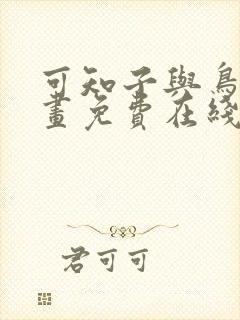 可知子與鳥
畫免費在綫
君可可